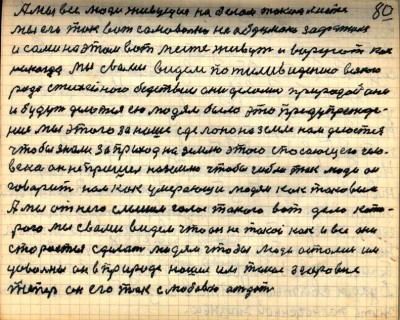 80
А мы все люди живущия на белом таком месте
мы его так вот самовольно необдумано захватили
и сами на этом вот месте живут и вырускот как
никогда мы с вами видем по телевидению всякого
рода стихейного бедствия они делались природой они
и будут делются ею людям было это предупрежде-
ние мы этого за наше сделоно на земле нам делается
чтобы знали за приход на землю этого спосающего чело-
века он не пришел на землю чтобы гибли так люди он
говорить нам как умирающи людям как таковым
А мы от него слышим голос такого вот дело кото-
рого мы с вами видем что он не такой как и все они
старается сделать людям чтобы люди остались им
довольны он в природе нашел им такое здоровье
тепер он его так с любовью отдает